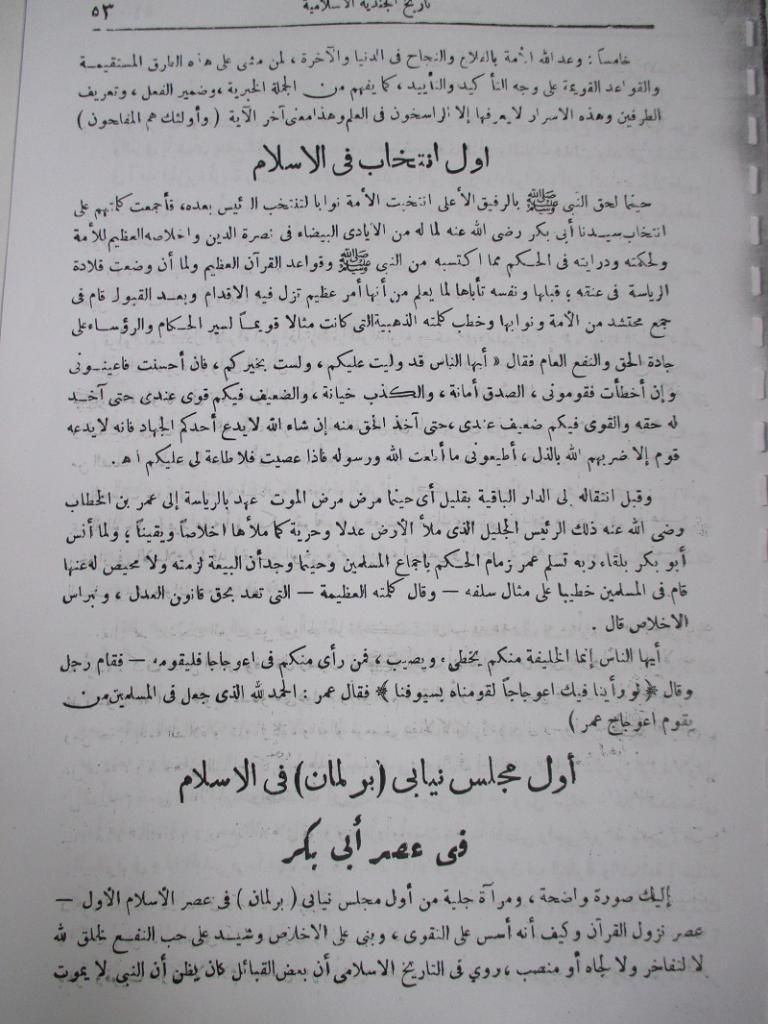 تاريخ الجندية الاسلامية ٥٣
خامساً : وعد الله الأمة بالفلاح والنجاح فى الدنيا والآخرة ، لمن مشى على هذه الطرق المستقيمة
والقواعد القويمة على وجه التأكيد والتأييد ، كما يفهم من الجملة الخبرية ، وضمير الفعل ، وتعريف
الطرفين وهذه الاسرار لا يعرفها إلا الراسخون فى العلم وهذا معنى آخر الآية ( وأولئك هم المفلحون )
اول انتخاب فى الاسلام
حينما لحق النبى ﷺ بالرفيق الأعلى انتخبت الأمة نوابا لتنتخب الرئيس بعده، فأجمعت كلمتهم على
انتخاب سيدنا أبى بكر رضى الله عنه لما له من الأيادى البيضاء فى نصرة الدين واخلاصه العظيم للأمة
ولحكمته ودرايته فى الحكم مما اكتسبه من النبى ﷺ وقواعد القرآن العظيم ولما أن وضعت قلادة
الرياسة فى عنقه ؛ قبلها ونفسه تأباها لما يعلم من أنها أمر عظيم تزل فيه الاقدام وبعد القبول قام فى
جمع محتشد من الأمة ونوابها وخطب كلمته الذهبية التى كانت مثالا قويماً لسير الحكام والرؤساء على
جادة الحق والنفع العام فقال « أيها الناس قد وليت عليكم ، ولست بخيركم ، فان أحسنت فاعينونى
وإن أخطأت فقومونى ، الصدق أمانة ، والكذب خيانة ، والضعيف فيكم قوى عندى حتى آخذ
له حقه والقوى فيكم ضعيف عندى ، حتى آخذ الحق منه إن شاء الله لا يدع أحدكم الجهاد فانه لا يدعه
قوم إلا ضربهم الله بالذل ، أطيعونى ما أطعت الله ورسوله فاذا عصيت فلا طاعة لى عليكم اهـ .
وقبل انتقاله إلى الدار الباقية بقليل أى حينما مرض مرض الموت عهد بالرياسة إلى عمر بن الخطاب
رضى الله عنه ذلك الرئيس الجليل الذى ملأ الأرض عدلا وحرية كما ملأها اخلاصاً ويقيناً ؛ ولما أنس
أبو بكر بلقاء ربه تسلم عمر زمام الحكم باجماع المسلمين وحينما وجد أن البيعة لزمته ولا محيص له عنها
قام فى المسلمين خطيبا على مثال سلفه — وقال كلمته العظيمة — التى تعد بحق قانون العدل ، ونبراس
الاخلاص قال .
أيها الناس إنما الخليفة منكم يخطىء ويصيب ، فمن رأى منكم فى اعوجاجا فليقومه — فقام رجل
وقال ﴿ لو رأينا فيك اعوجاجاً لقومناه بسيوفنا ﴾ فقال عمر : الحمد لله الذى جعل فى المسلمين من
يقوم اعوجاج عمر )
أول مجلس نيابى (بولمان) فى الاسلام
فى عصر أبى بكر
إليك صورة واضحة ، ومرآة جلية من أول مجلس نيابى ( برلمان ) فى عصر الأسلام الأول —
عصر نزول القرآن وكيف أنه أسس على التقوى ، وبنى على الاخلاص وشيد على حب النفع لخلق لله
لا لتفاخر ولا لجاه أو منصب ، روي فى التاريخ الاسلامى أن بعض القبائل كان يظن أن النبى لا يموت